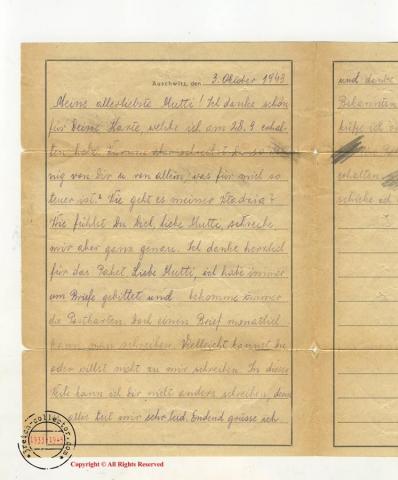 Auschwitz, den 3. Oktober 1943
Meine allerliebste Mutti! Ich danke schön
für Deine Karte, welche ich am 28.9. erhal-
ten habe. Warum aber schreibst Du so we-
nig von Dir u. von allem, was für mich so
teuer ist? Wie geht es meiner
Wie fühlst Du Dich, liebe Mutti, schreibe
mir aber ganz genau. Ich danke herzlich
für das Paket. Liebe Mutti, ich habe immer
um Briefe gebittet und bekomme immer
die Postkarten. Doch einen Brief monatlich
kann man schreiben. Vielleicht kannst Du
oder willst nicht zu mir schreiben. In diese
Zeile kann ich Dir nicht anders schreiben, denn
alles teit mir sehr leid. Endend grüsse ich
und danke
Bekannten
erhalten
schicke ich
3reich-collector.com
1933-1945
Copyright © All Rights Reserved